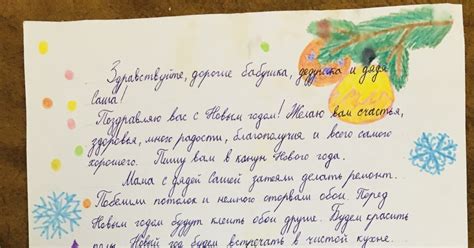 Здравствуйте, дорогие бабушка, дедушка и дядя
Саша!
Поздравляю вас с Новым годом! Желаю вам счастья,
здоровья, много радости, благополучия и всего самого
хорошего. Пишу вам в канун Нового года.
Мама с дядей Сашей затеяли делать ремонт.
Побелили потолок и немного оторвали обои. Перед
Новым годом будут клеить обои другие. Будем красить
полы. Новый год будем встречать в чистой кухне.